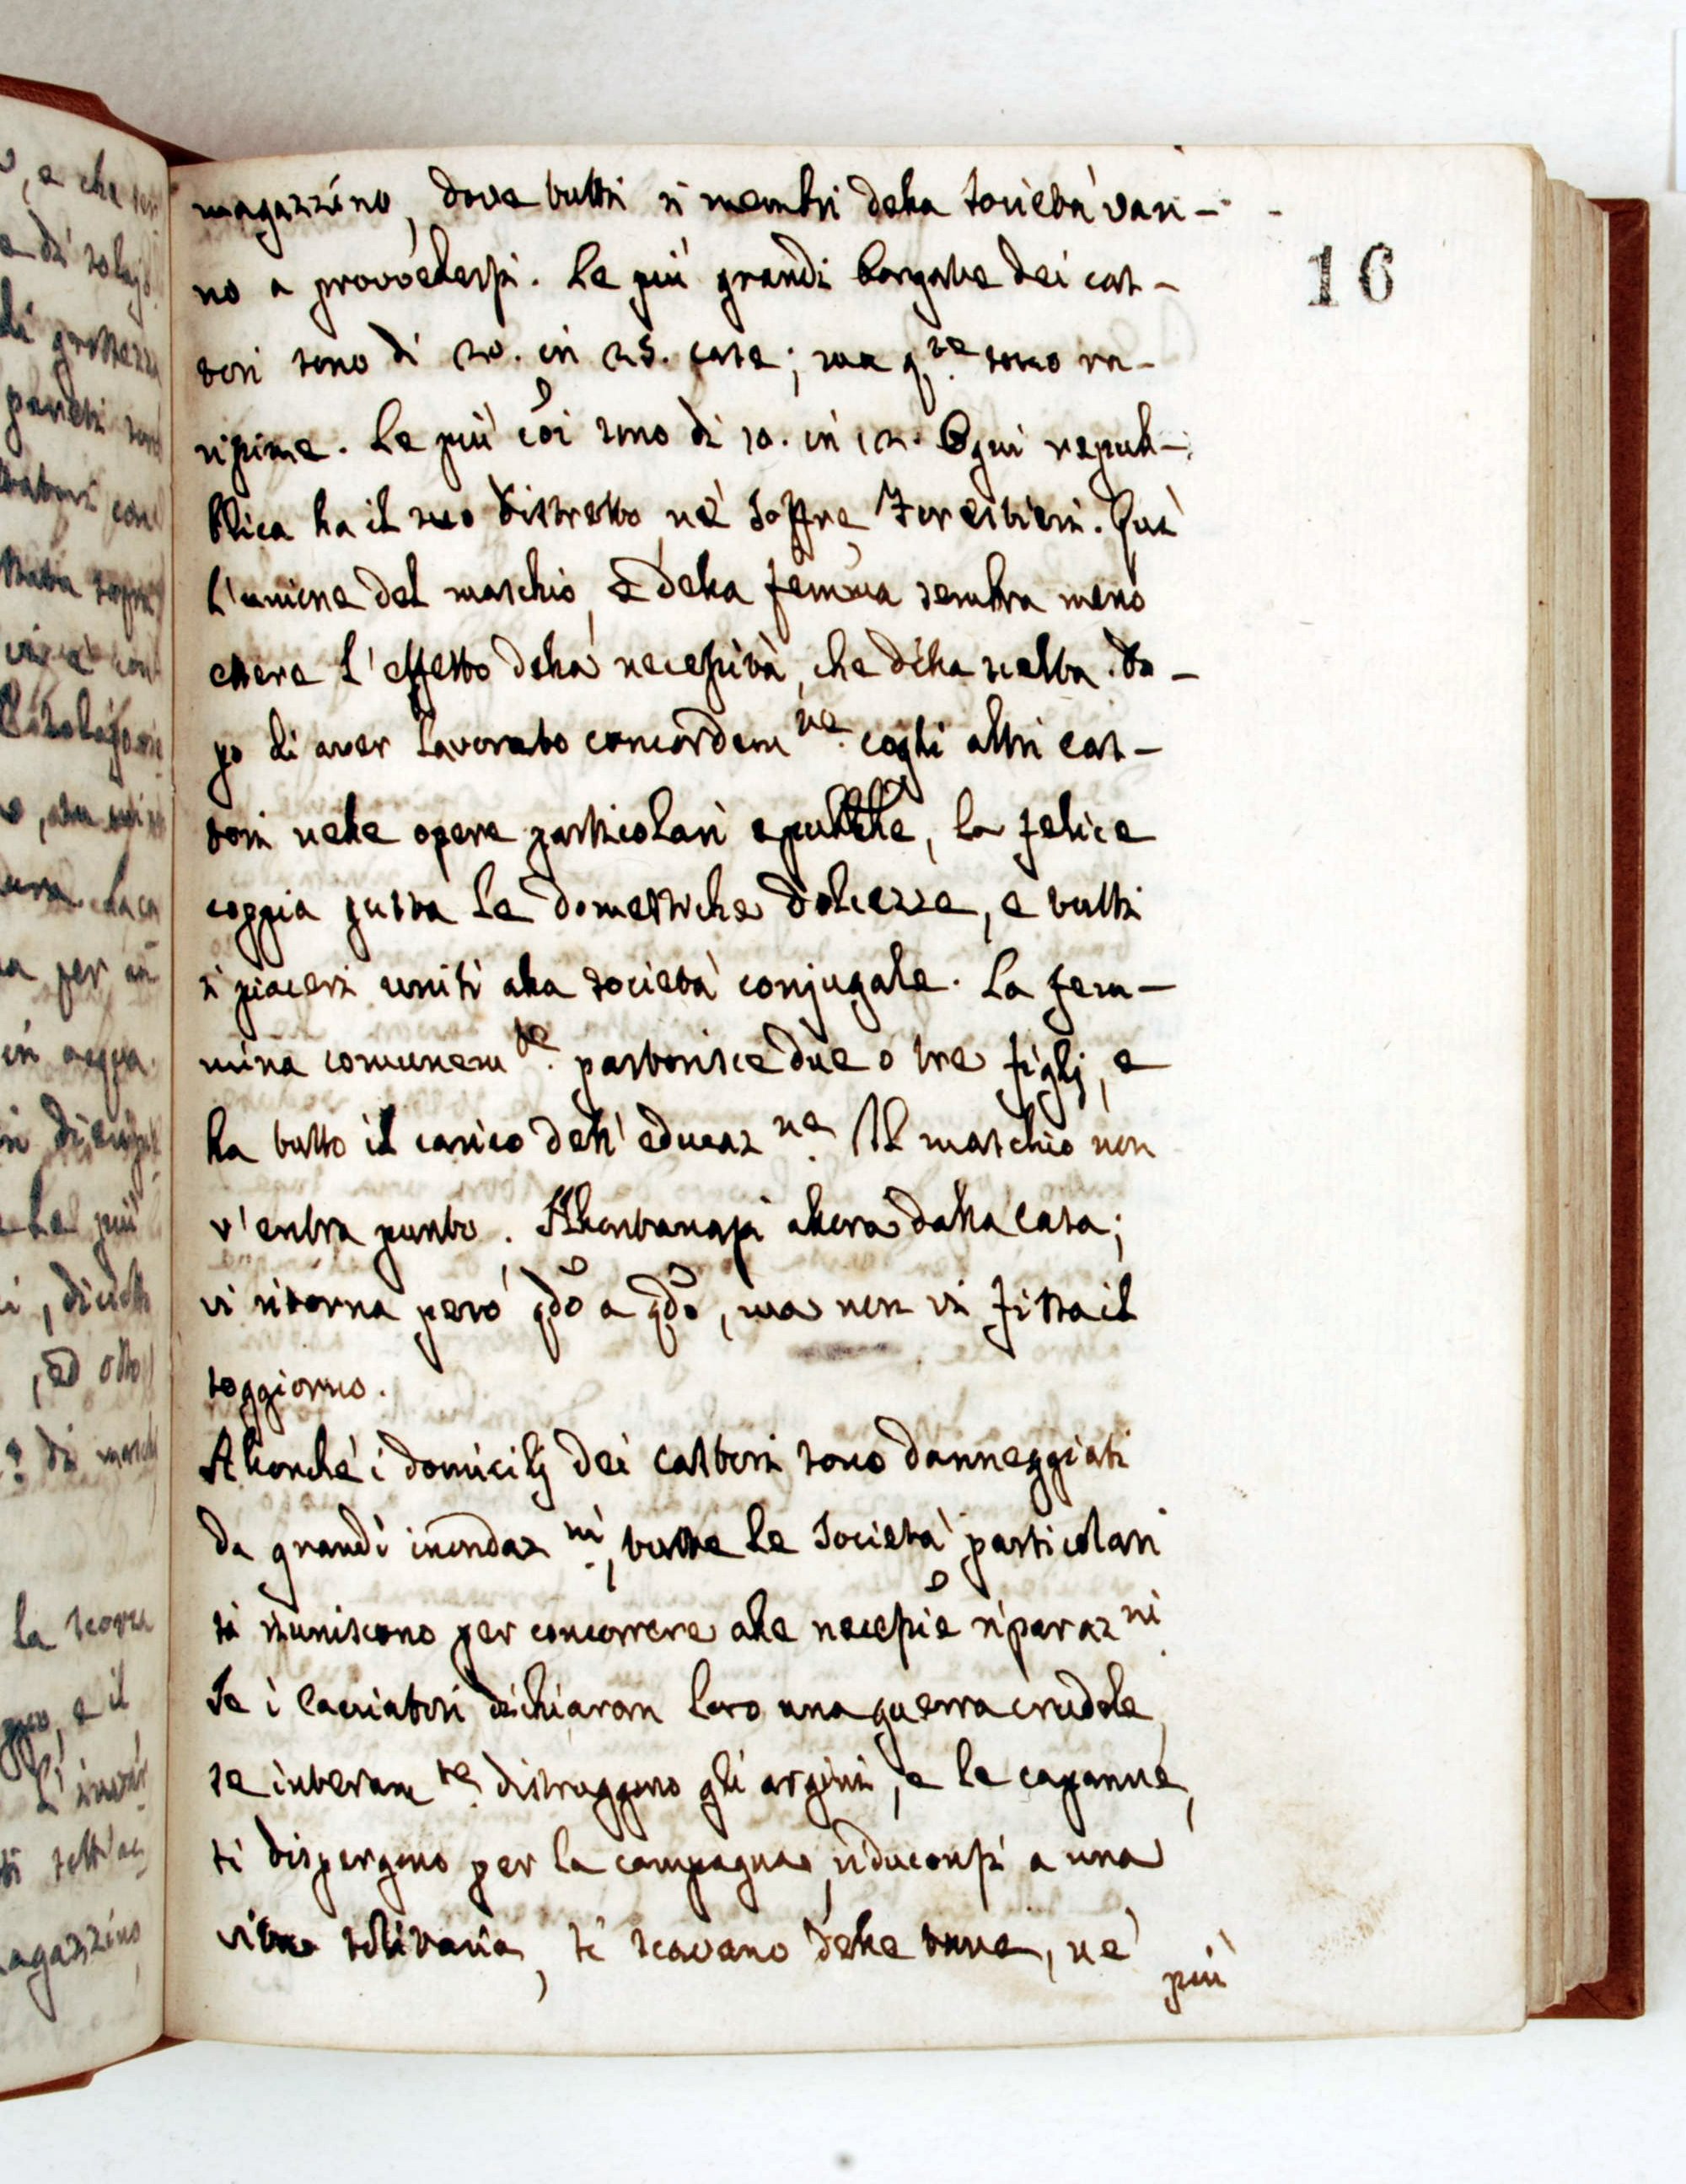 magazzino, dove tutti i membri della società van-
no a provvedersi. Le più grandi borgate dei cas-
tori sono di 20. in 25. case; ma q.te sono ra-
rissime. Le più cõi sono di 10. in 12. Ogni repub-
blica ha il suo distretto, nè soffre Forestieri. Quì
l'unione del maschio, e della femina sembra meno
essere l'effetto della necessità, che della scelta. Do-
po di aver lavorato concordem.te cogli altri cas-
tori nelle opere particolari e pubbliche, la felice
coppia gusta le domestiche dolcezze, e tutti
i piaceri uniti alla società conjugale. La fem-
mina comunem.te partorisce due o tre figlj, e
ha tutto il carico dell'educaz.ne Il maschio non
v'entra punto. Allontanasi allora dalla casa;
vi ritorna però qdõ a qdõ, ma non vi fissa il
soggiorno.
Allorchè i domicilj dei castori sono danneggiati
da grandi inondaz.ni, tutte le società particolari
si riuniscono per concorrere alle necessie riparaz.ni
Se i cacciatori dichiaran loro una guerra crudele,
se interam.te distruggono gli argini, e le capanne,
si dispergono per la campagna, riduconsi a una
vita solitaria, si scavano delle tane, nè
più
16